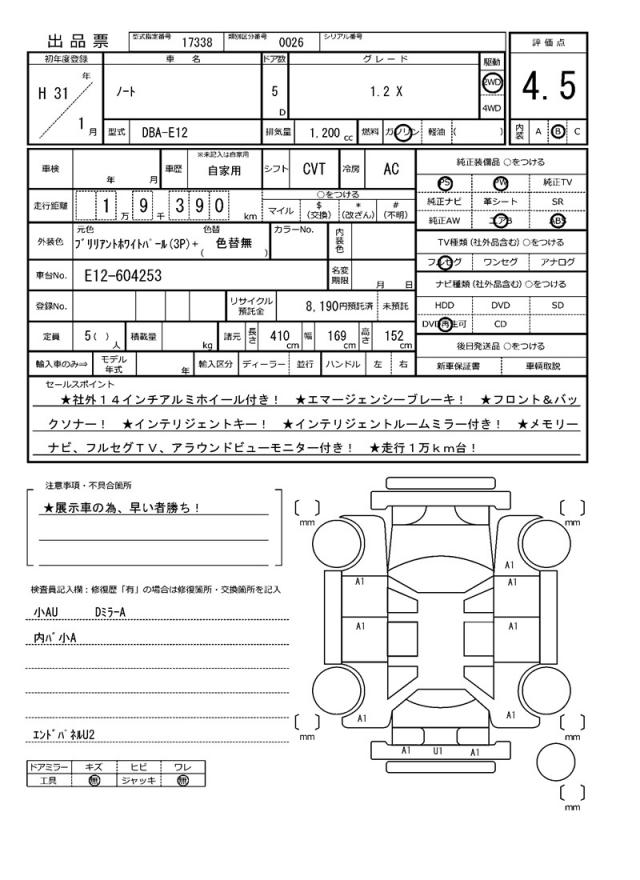 出品票 型式指定番号 17338 類別区分番号 0026 シリアル番号
評価点
4.5
内装 A B C
初年度登録 車名 ドア数 グレード 駆動
H 31 年 1 月
ノート 5 D 1.2 X 2WD 4WD
型式 DBA-E12 排気量 1.200 cc 燃料 ガソリン 軽油 ( )
車検 年 月 車歴 ※未記入は自家用 自家用 シフト CVT 冷房 AC
走行距離 1 万 9 千 3 9 0 km
○をつける
マイル $(交換) *(改ざん) #(不明)
外装色 元色 ブリリアントホワイトパール(3P)+ 色替 ( 色替無 ) カラーNo. 内装色
車台No. E12-604253 名変期限 月 日
登録No. リサイクル預託金 8,190円預託済 未預託
定員 5( )人 積載量 kg 諸元 長さ 410 cm 幅 169 cm 高さ 152 cm
輸入車のみ⇒ モデル年式 年 輸入区分 ディーラー 並行 ハンドル 左 右
純正装備品 ○をつける
PS PW 純正TV
純正ナビ 革シート SR
純正AW エアB ABS
TV種類(社外品含む)○をつける
フルセグ ワンセグ アナログ
ナビ種類(社外品含む)○をつける
HDD DVD SD
DVD再生可 CD
後日発送品 ○をつける
新車保証書 車輌取説
セールスポイント
★社外14インチアルミホイール付き! ★エマージェンシーブレーキ! ★フロント&バッ
クソナー! ★インテリジェントキー! ★インテリジェントルームミラー付き! ★メモリー
ナビ、フルセグTV、アラウンドビューモニター付き! ★走行1万km台!
注意事項・不具合箇所
★展示車の為、早い者勝ち!
検査員記入欄:修復歴「有」の場合は修復箇所・交換箇所を記入
小AU DミラーA
内パ小A
エンドパネルU2
ドアミラー キズ ヒビ ワレ
工具 無 ジャッキ 無
[ ] mm [ ] mm
A1
A1 A1
A1 A1
A1 A1
[ ] mm [ ] mm
A1 U1 A1
[ ] mm